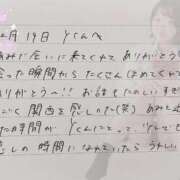 2月19日 Yさんへ
あみに会いに来てくれてありがとう
会った瞬間からたくさんほめてくれて
ありがとう～!! お話をたのしいすぎ
ごく関西を感じたわ(笑) あみと
た時間が Yくんにとって、少しでも
癒しの時間になれていたらうれしい